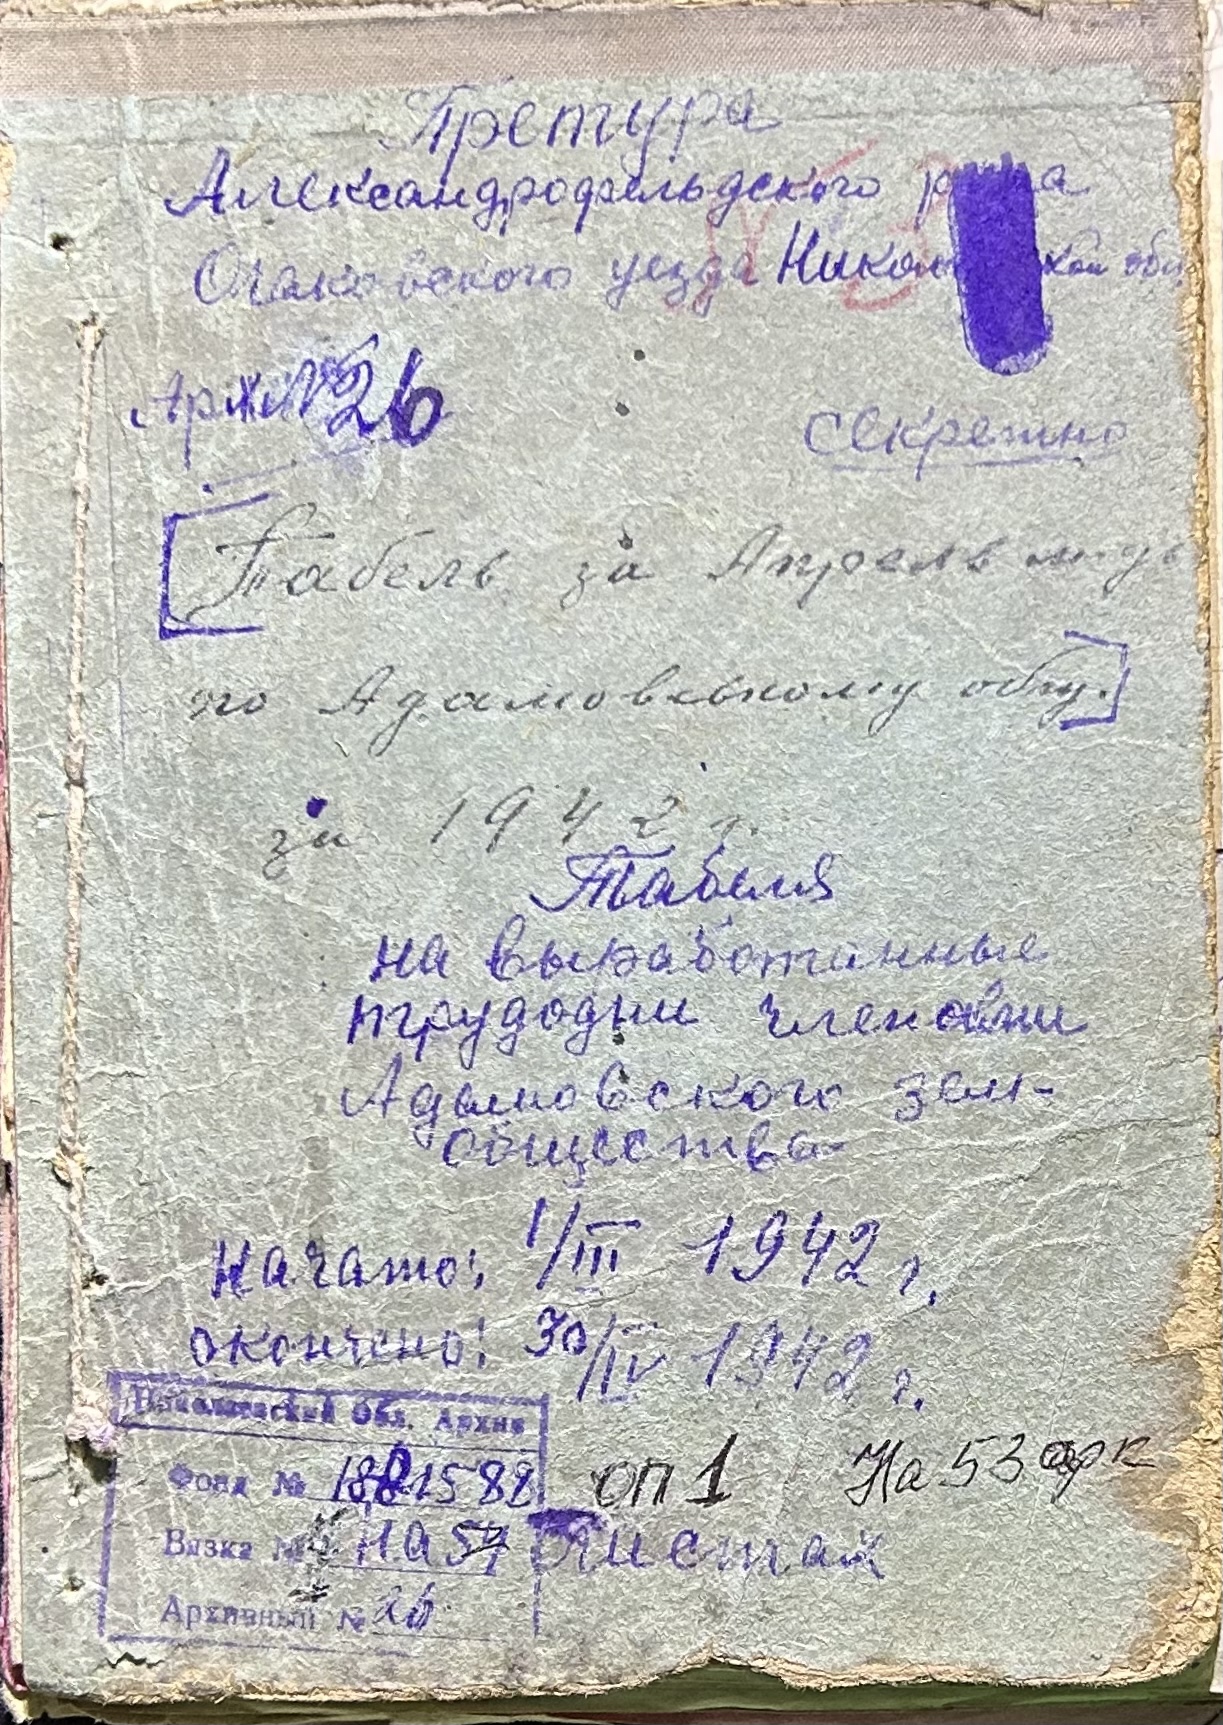 Претура
Александрофельдского р на
Очаковского уезда Никол ской обл.
Арх № 26
секретно
Табель за Апрель м-ць
по Адамовскому общ.
за 1942 г.
Табеля
на выработанные
трудодни членами
Адамовского зем-
общества
Начато: 1/III 1942 г.
окончено: 30/IV 1942 г.
Николаевский Обл. Архив
Фонд № 1588 оп 1 На 53 арк
Вязка № На 57 листах
Архивный № 26